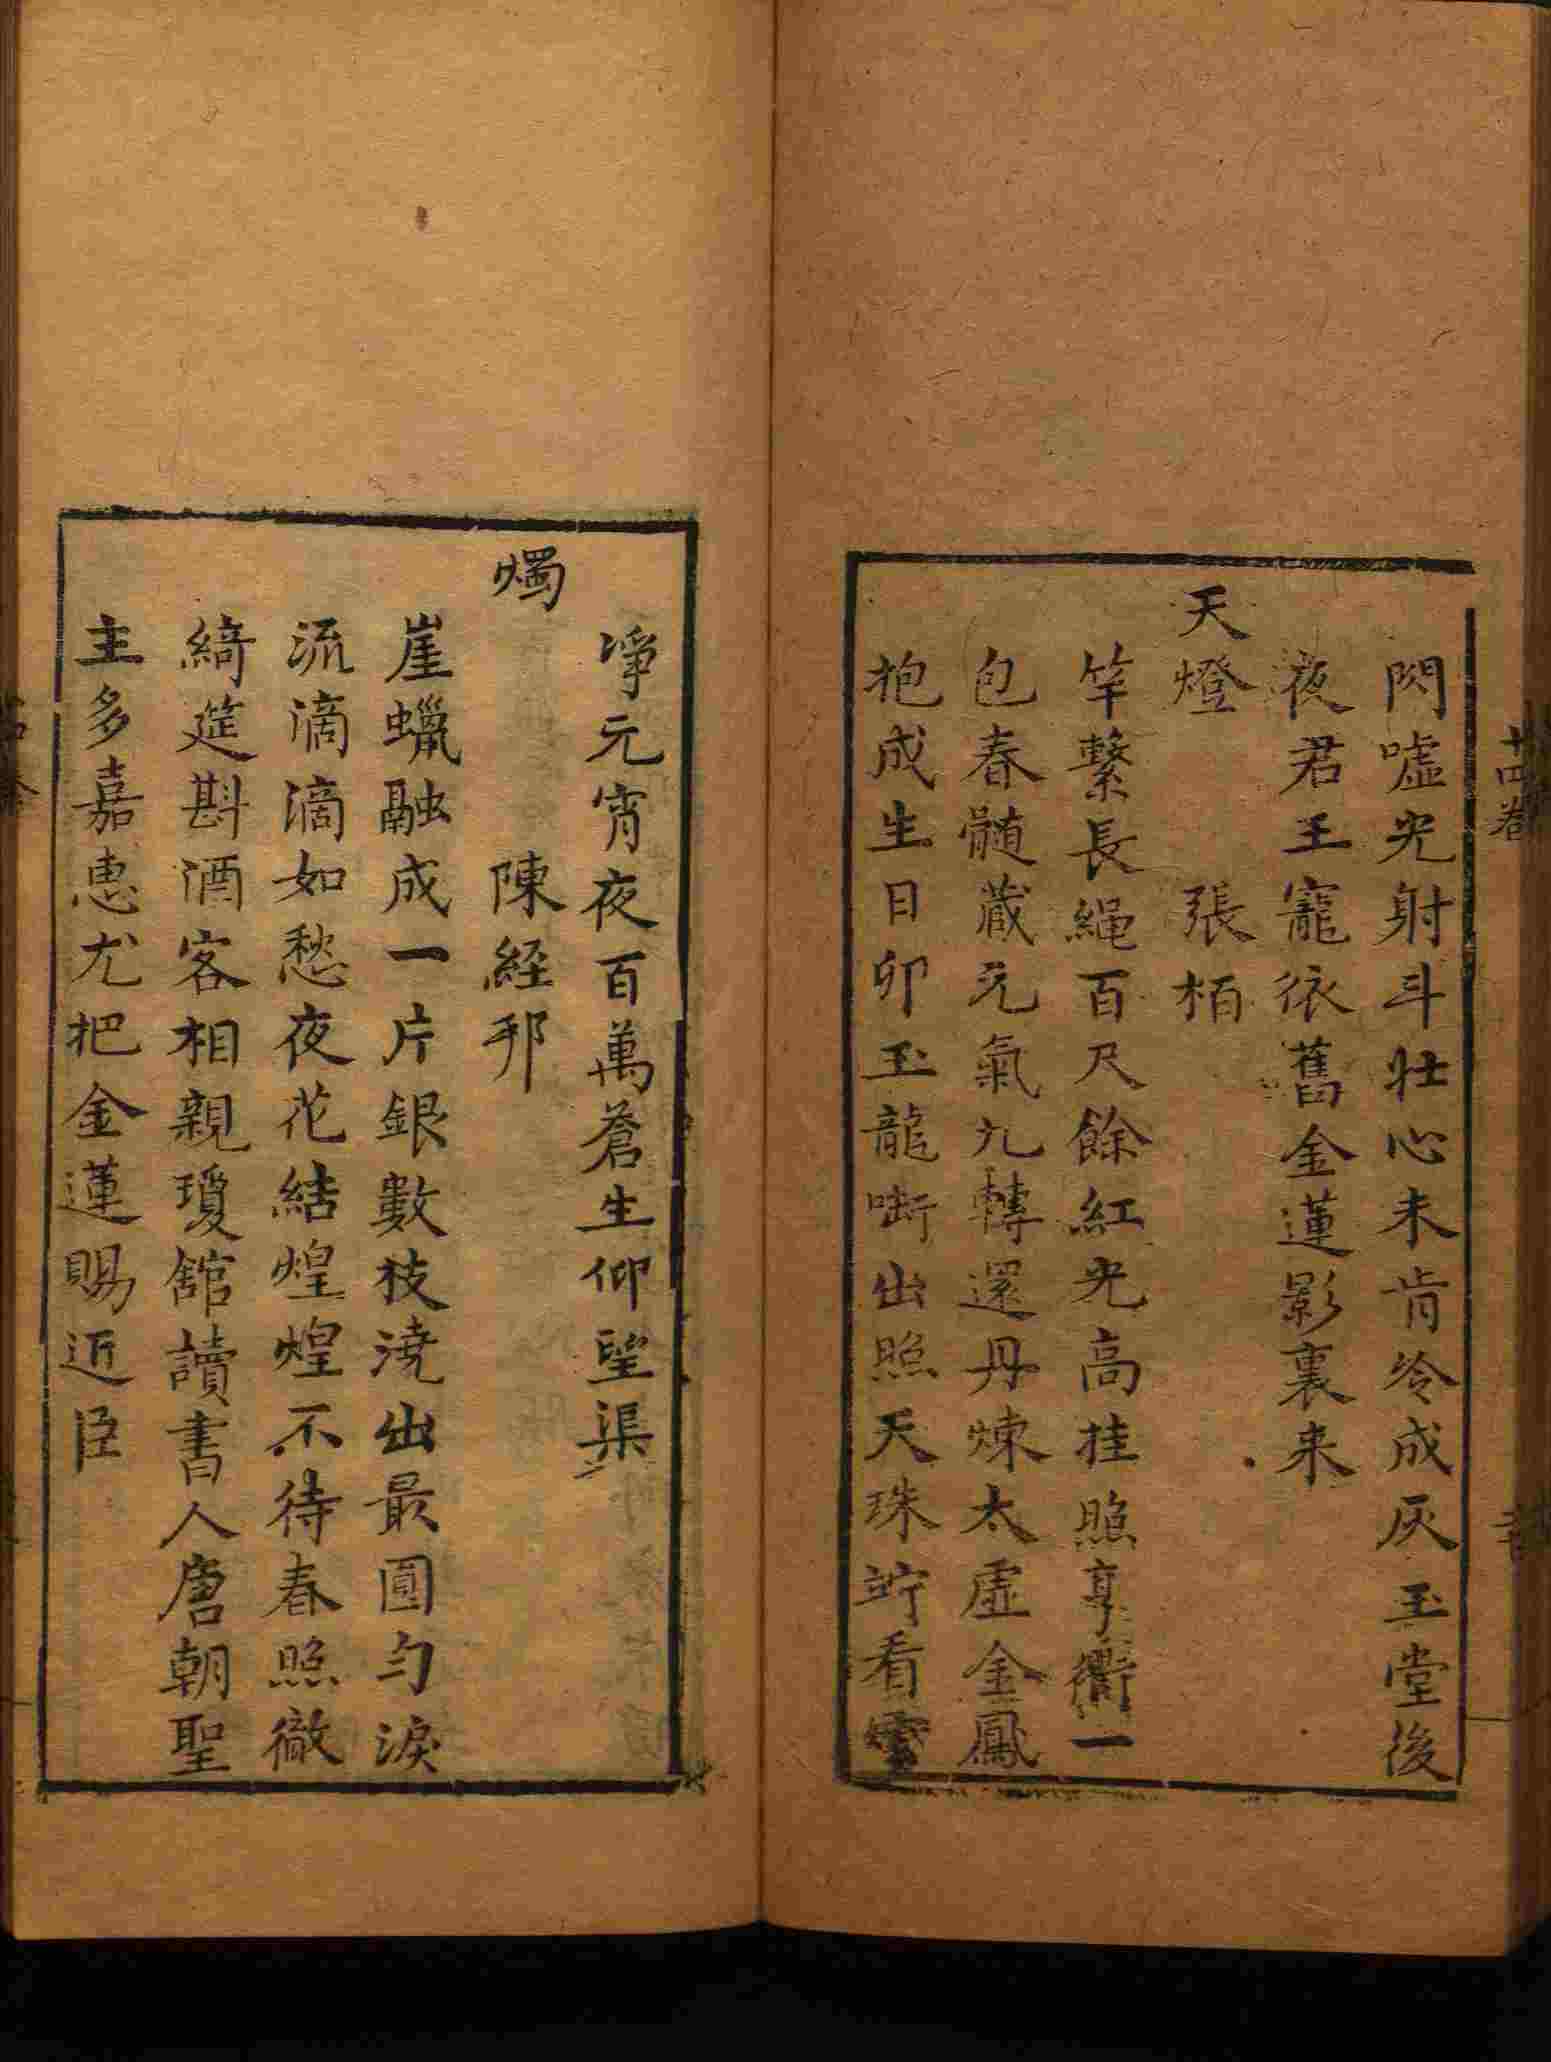 閃噓光射斗壮心未肯冷成灰玉堂後
夜君王寵依舊金蓮影裏来
天燈 張栢
竿繫長繩百尺餘紅光高挂照享衢一
包春髓蔵元氣九轉還丹煉太虛金鳳
抱成生日卵玉龍啣出照天珠竚看
淨元宵夜百萬蒼生仰望渠
燭 陳経邦
崖蠟融成一片銀數枝澆出最圓勻淚
流滴滴如愁夜花結煌煌不待春照徹
綺筵斟酒客相親瓊舘讀書人唐朝聖
主多嘉惠尤把金蓮賜近臣
十四卷